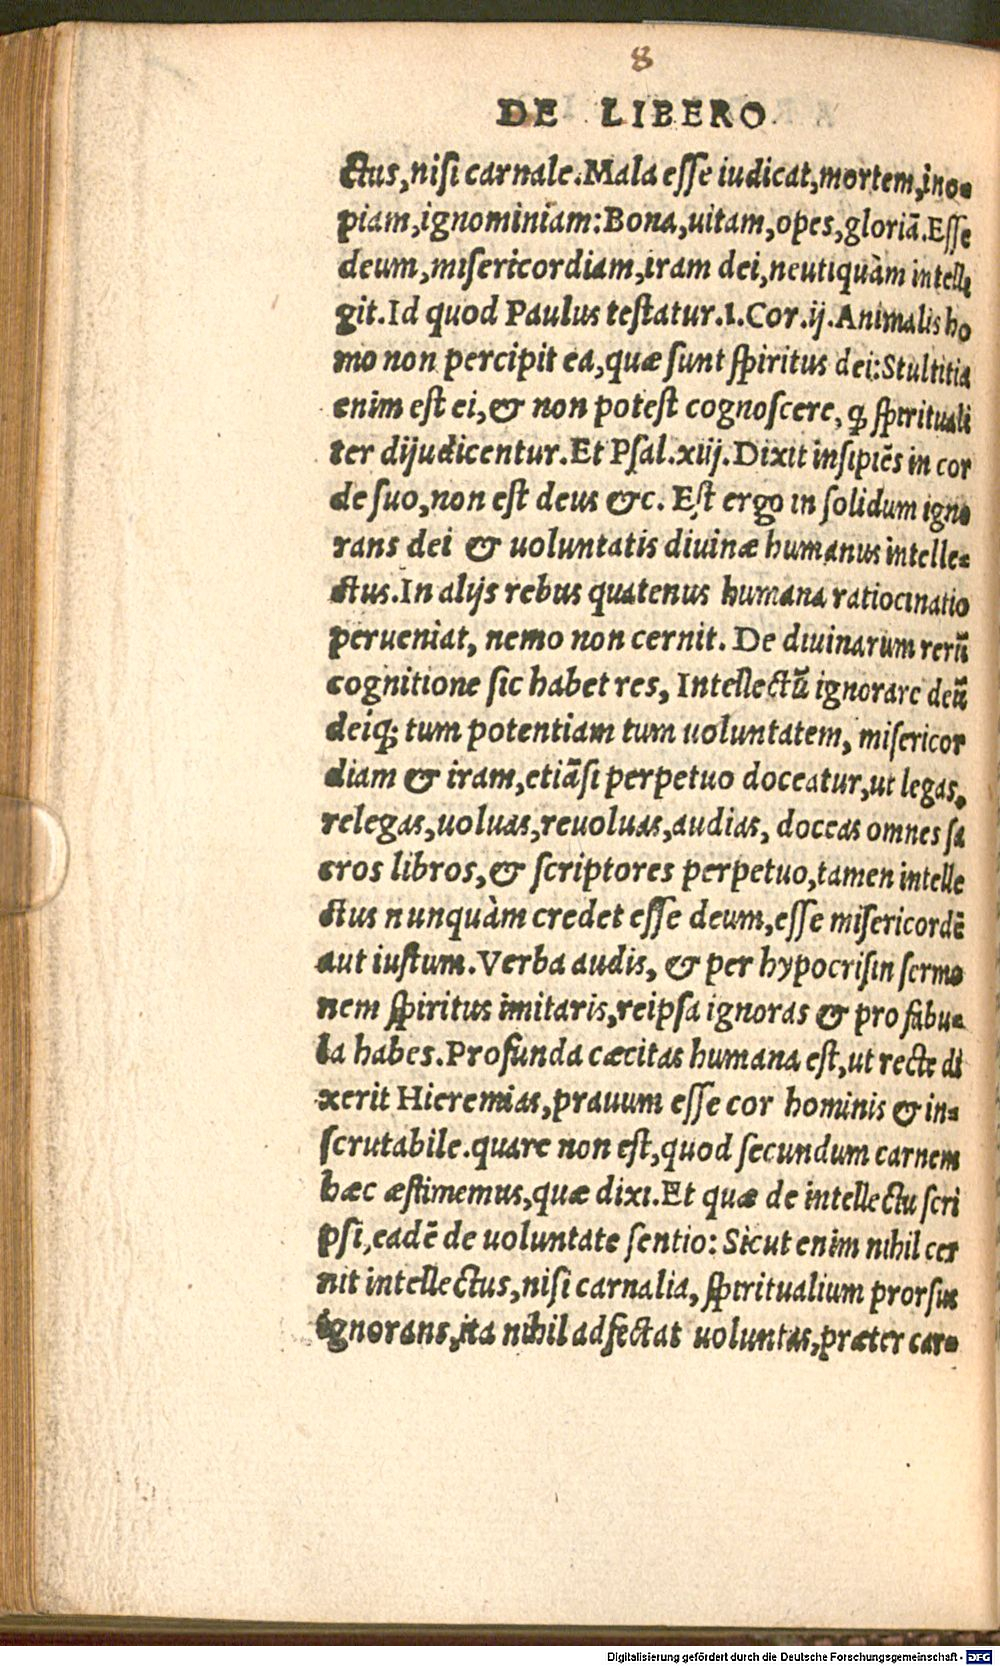 8
DE LIBERO
ctus, nisi carnale. Mala esse iudicat, mortem, ino-
piam, ignominiam: Bona, uitam, opes, gloriã. Esse
deum, misericordiam, iram dei, neutiquàm intelle
git. Id quod Paulus testatur. 1. Cor. ij. Animalis ho
mo non percipit ea, quæ sunt spiritus dei: Stultitia
enim est ei, & non potest cognoscere, ꝙ spirituali
ter dijudicentur. Et Psal. xiij. Dixit insipiẽs in cor
de suo, non est deus &c. Est ergo in solidum igno
rans dei & uoluntatis diuinæ humanus intelle-
ctus. In alijs rebus quatenus humana ratiocinatio
perueniat, nemo non cernit. De diuinarum rerũ
cognitione sic habet res, Intellectũ ignorare deũ
deiq; tum potentiam tum uoluntatem, misericor
diam & iram, etiãsi perpetuo doceatur, ut legas,
relegas, uoluas, reuoluas, audias, doceas omnes sa
cros libros, & scriptores perpetuo, tamen intelle
ctus nunquàm credet esse deum, esse misericordẽ
aut iustum. Verba audis, & per hypocrisin sermo
nem spiritus imitaris, reipsa ignoras & pro fabu-
la habes. Profunda cæcitas humana est, ut recte di
xerit Hieremias, prauum esse cor hominis & in-
scrutabile. quare non est, quod secundum carnem
hæc æstimemus, quæ dixi. Et quæ de intellectu scri
psi, eadẽ de uoluntate sentio: Sicut enim nihil cer
nit intellectus, nisi carnalia, spiritualium prorsus
ignorans, ita nihil adfectat uoluntas, præter car-
Digitalisierung gefördert durch die Deutsche Forschungsgemeinschaft - DFG